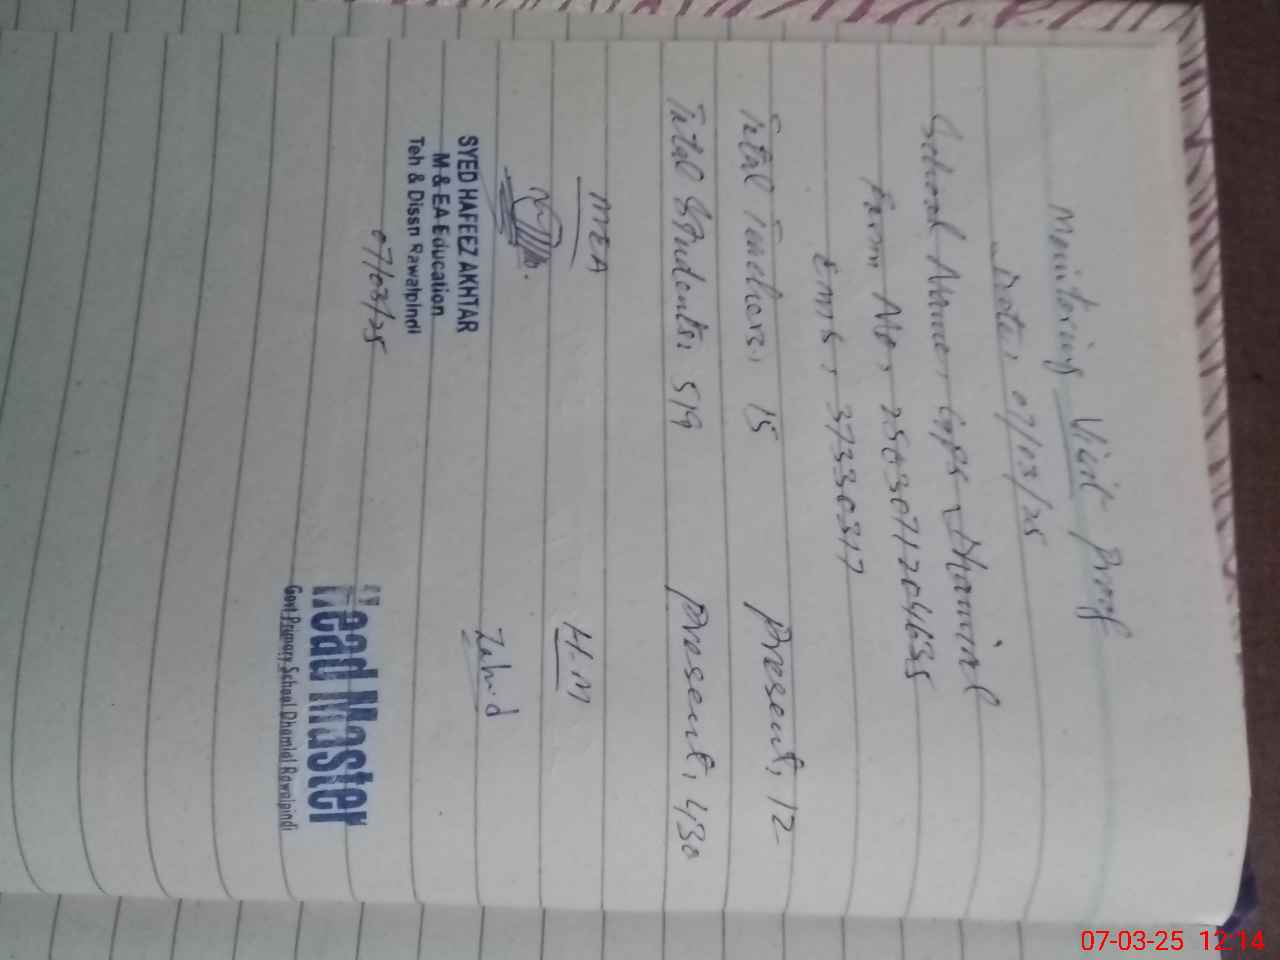 Monitoring Visit Proof
Date: 07/03/25
School Name: GPS Dhamial
Form No: 2503071204635
Emis: 37330317
Total Teachers: 15 Present: 12
Total Students: 519 Present: 430
MEA H-M
Zahid
SYED HAFEEZ AKHTAR
M & EA Education
Teh & Dissn Rawalpindi
07/03/25
Head Master
Govt Primary School Dhamial Rawalpindi
07-03-25 12:14